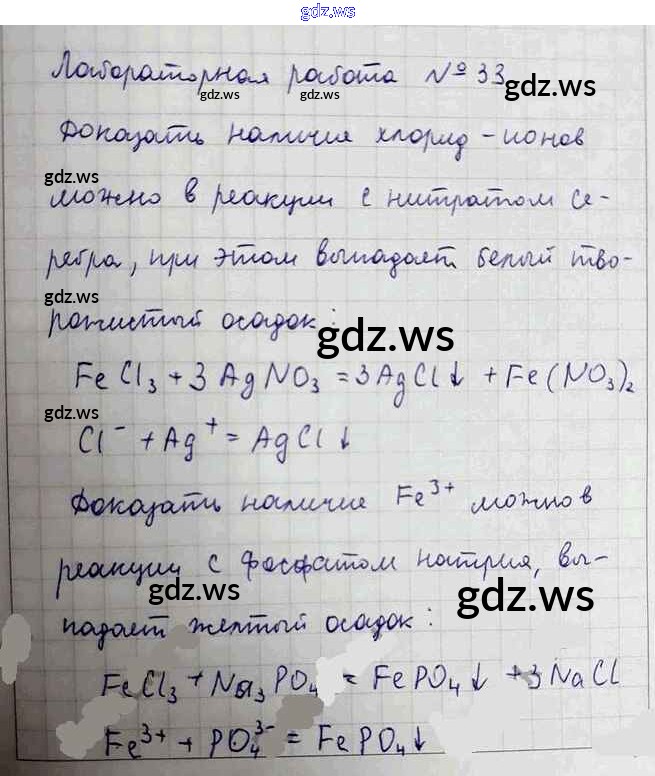 gdz.ws
Лабораторная работа №33
gdz.ws gdz.ws gdz.ws
Доказать наличие хлорид-ионов
gdz.ws gdz.ws
можно в реакции с нитратом се-
ребра, при этом выпадает белый тво-
gdz.ws
рожистый осадок:
gdz.ws
FeCl₃ + 3AgNO₃ = 3AgCl↓ + Fe(NO₃)₂
gdz.ws
Cl⁻ + Ag⁺ = AgCl↓
Доказать наличие Fe³⁺ можно в
реакции с фосфатом натрия, вы-
gdz.ws gdz.ws
падает желтый осадок:
FeCl₃ + Na₃PO₄ = FePO₄↓ + 3NaCl
Fe³⁺ + PO₄³⁻ = FePO₄↓